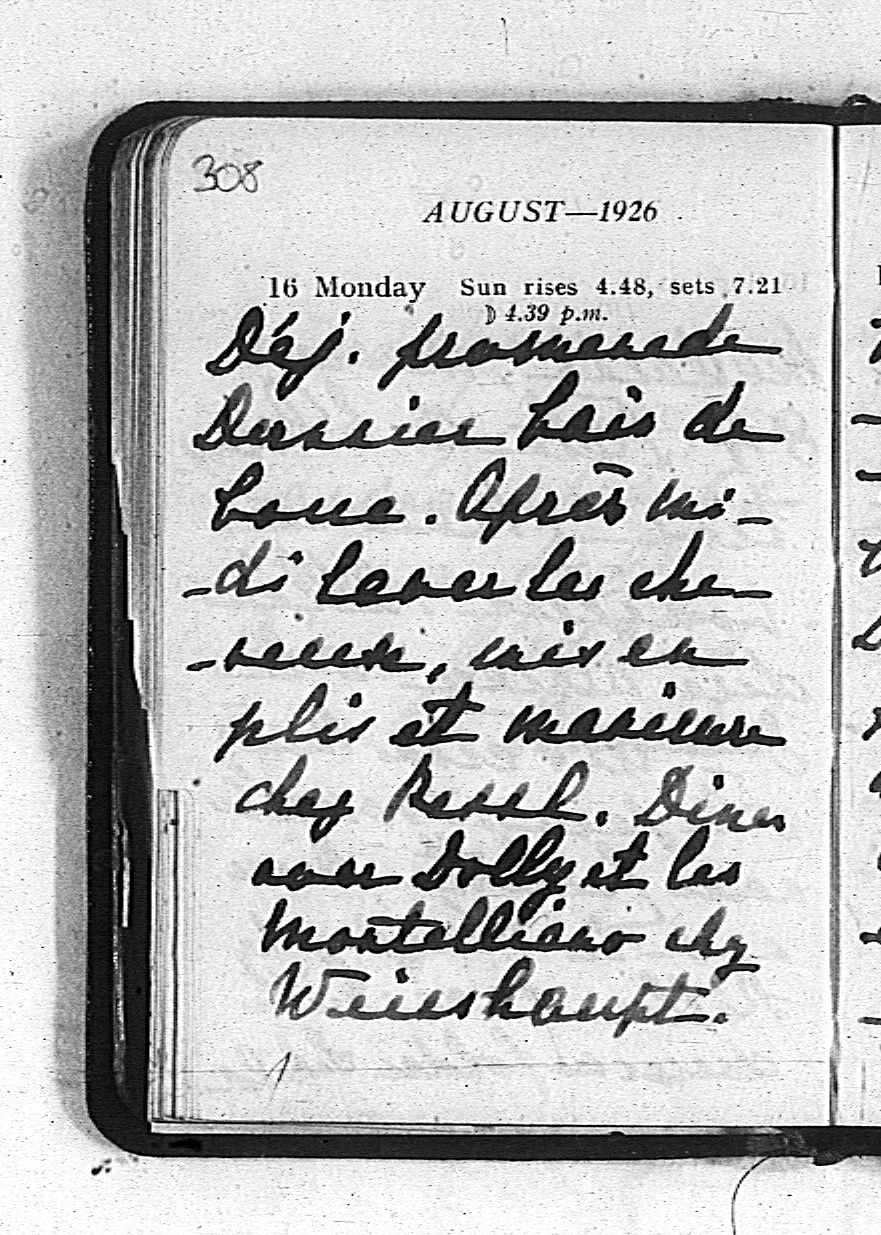 308
AUGUST—1926
16 Monday Sun rises 4.48, sets 7.21
☽ 4.39 p.m.
Déj. promenade
Dernier bain de
boue. Après mi-
-di laver les che-
-veux, mis en
plis et manicure
chez Ressel. Diner
avec Dolly et les
Montelliano chez
Weieshaupt.